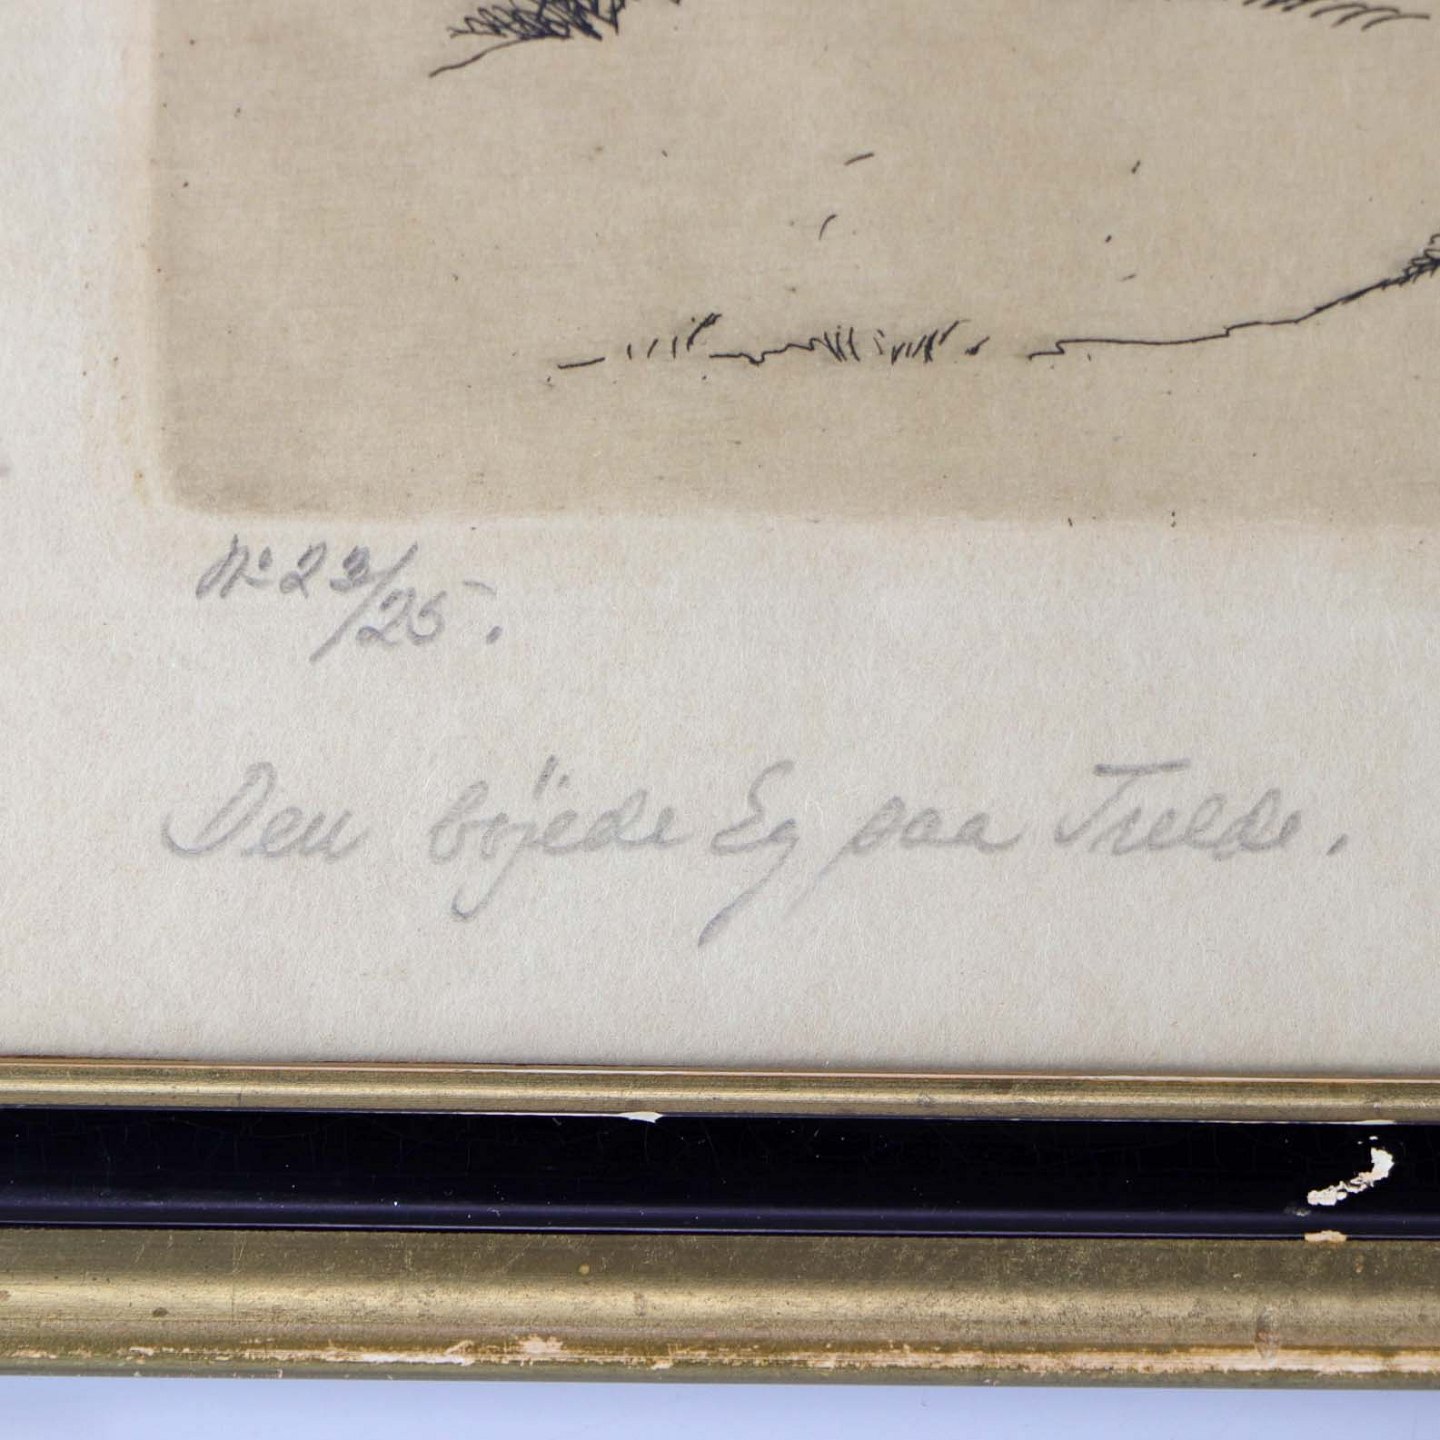 No 23/25.
Den böjede Eg paa Trelde.